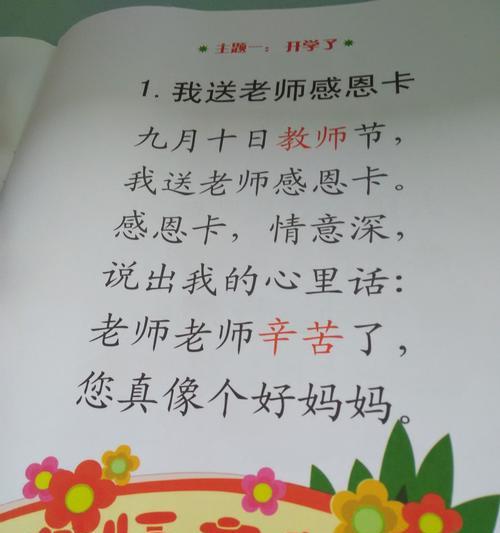 主题一：开学了
1. 我送老师感恩卡
九月十日教师节，
我送老师感恩卡。
感恩卡，情意深，
说出我的心里话：
老师老师辛苦了，
您真像个好妈妈。